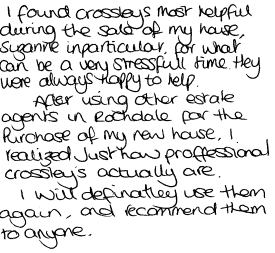 I found crossleys most helpful
during the sale of my house,
Suzanne inparticular, for what
can be a very stressfull time they
were always happy to help.
After using other estate
agents in Rochdale for the
Purchase of my new house, I
realized Just how proffessional
crossley's actually are.
I will definatley use them
again, and recommend them
to anyone.